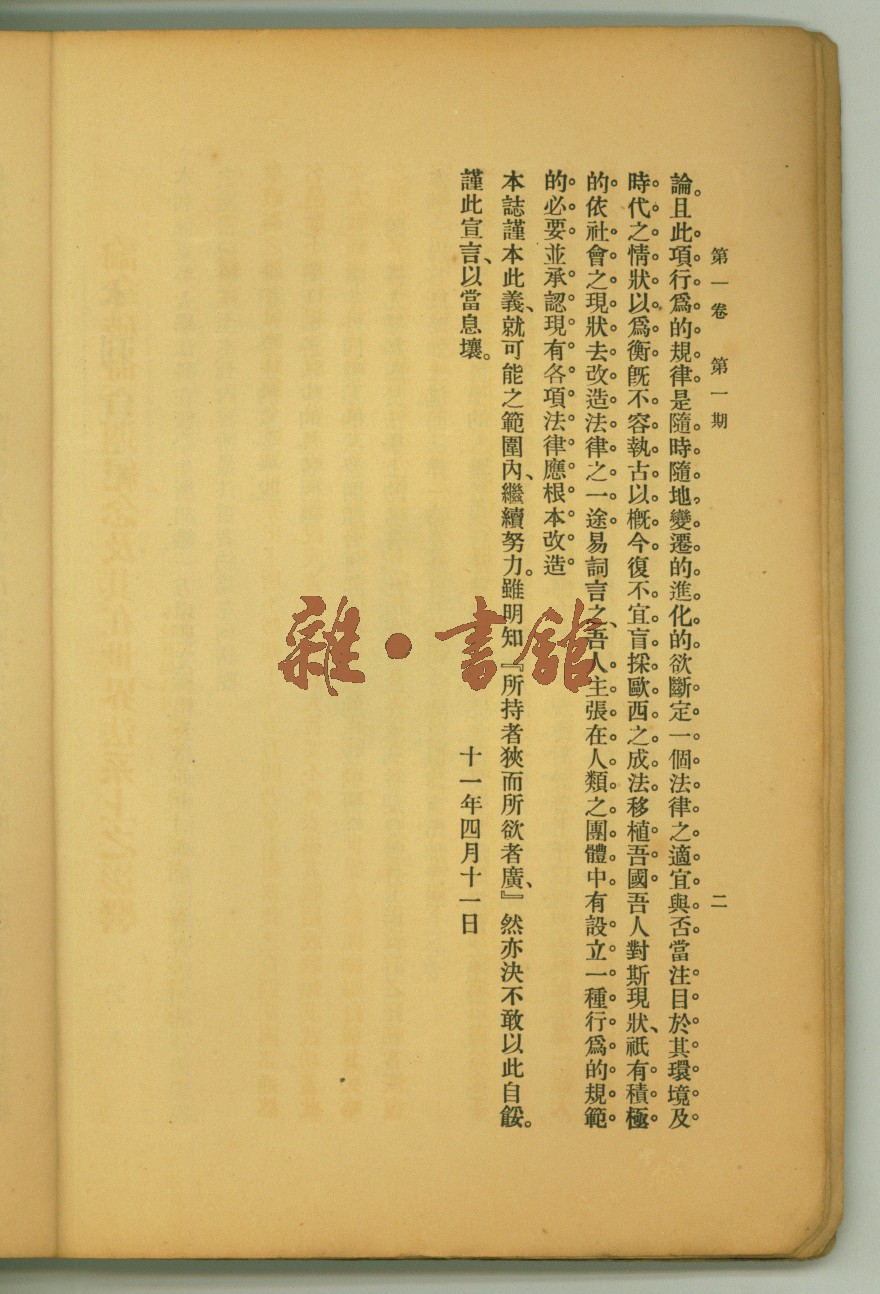 第一卷 第一期 二
論。且此項行爲的規律是隨時隨地變遷的進化的欲斷定一個法律之適宜與否當注目於其環境及
時代之情狀以爲衡旣不容執古以槪今復不宜盲採歐西之成法移植吾國吾人對斯現狀、祇有積極
的依社會之現狀去改造法律之一途易詞言之、吾人主張在人類之團體中有設立一種行爲的規範
的必要並承認現有各項法律應根本改造。
本誌謹本此義、就可能之範圍內、繼續努力。雖明知『所持者狹而所欲者廣、』然亦決不敢以此自餒。
謹此宣言、以當息壤。
十一年四月十一日
雜·書館